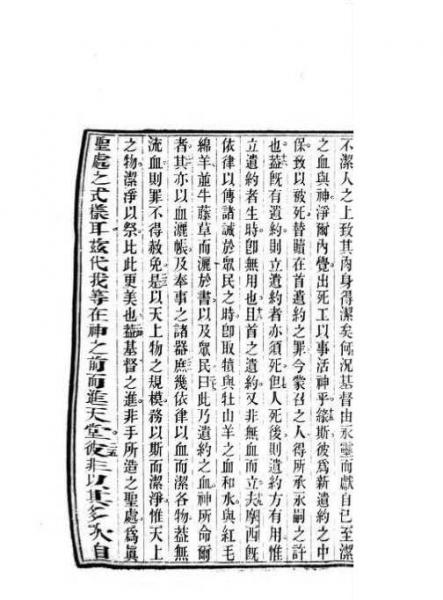 不潔人之上致其肉身得潔矣何況基督由永靈而獻自己至潔
之血與神淨爾內覺出死工以事活神乎緣斯彼爲新遺約之中
保致以被死替贖在首遺約之罪今蒙召之人得所承永嗣之許
也蓋旣有遺約則立遺約者亦須死但人死後則遺約方有用惟
立遺約者生時卽無用也且首之遺約又非無血而立夫摩西旣
依律以傳諸誡於眾民之時卽取犢與牡山羊之血和水與紅毛
綿羊並牛藤草而灑於書以及眾民曰此乃遺約之血神所命爾
者其亦以血灑帳及奉事之諸器庶幾依律以血而潔各物蓋無
流血則罪不得赦免是以天上物之規模務以斯而潔淨惟天上
之物潔淨以祭比此更美也蓋基督之進非手所造之聖處爲眞
聖處之式樣耳茲代我等在神之前而進天堂彼非以其多次自